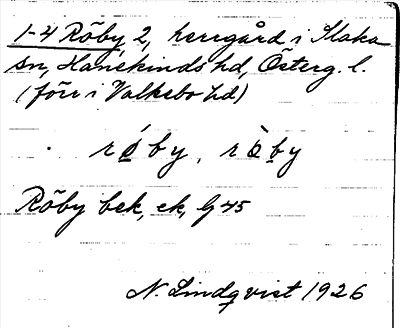 1-4 Röby 2, herrgård i Slaka
sn, Hanekinds hd, Österg. l.
(förr i Valkebo hd)
røby, ròby
Röby bek, ek, G 45
N. Lindqvist 1926